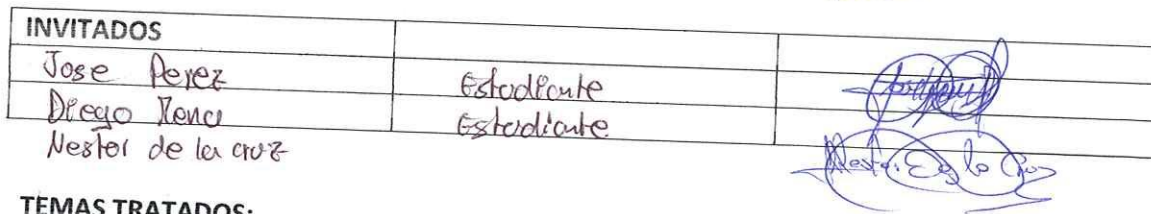 INVITADOS
Jose Perez Estudiante
Diego Estudiante
Nestor de la cruz Nestor De la Cruz
TEMAS TRATADOS: